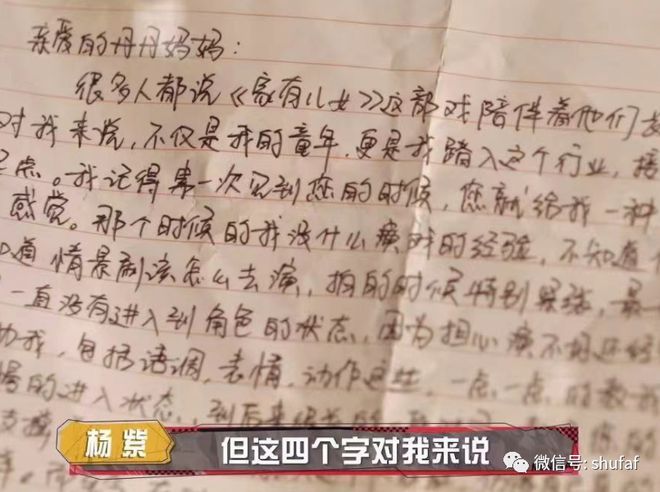 亲爱的丹丹妈妈:
很多人都说《家有儿女》这部戏陪伴着他们
对我来说,不仅是我的童年,更是我踏入这个行业,接
点。我记得第一次见到您的时候,您就给我一种
感觉。那个时候的我没什么演戏的经验,不知道
道情景剧该怎么去演,拍的时候特别紧张,最
一直没有进入到角色的状态,因为担心演不好还
我,包括语调,表情,动作这些,一点一点的教我
的进入状态,到后来
杨紫
但这四个字对我来说
微信号: shufaf